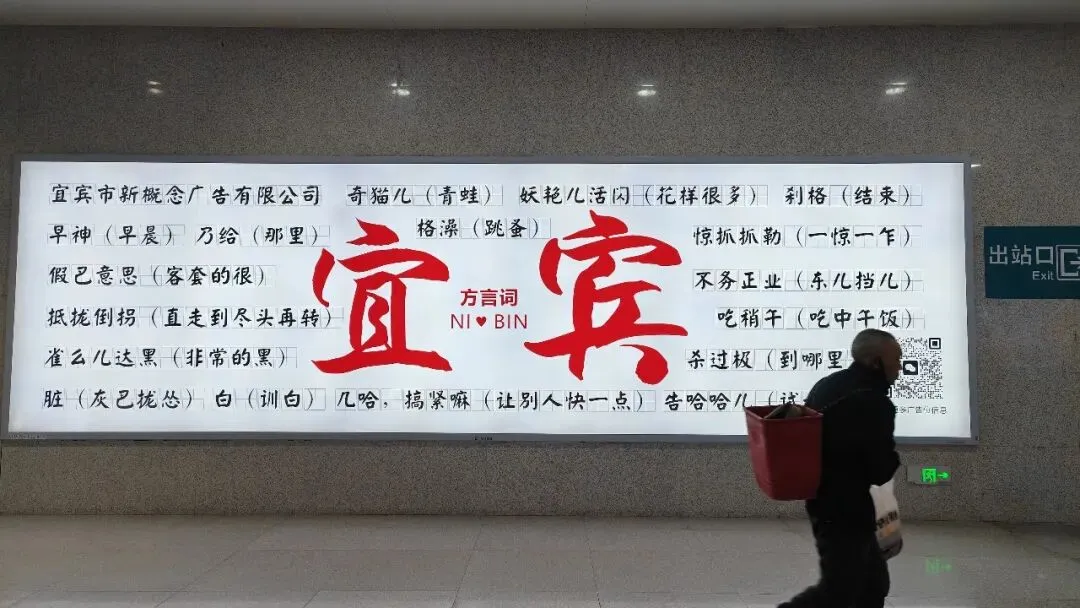 宜宾市新概念广告有限公司 奇猫儿（青蛙） 妖艳儿活闪（花样很多） 刹格（结束）
早神（早晨） 乃给（那里） 格澡（跳蚤） 惊抓抓勒（一惊一乍）
假巴意思（客套的很） 不务正业（东儿挡儿）
抵拢倒拐（直走到尽头再转） 吃稍午（吃中午饭）
雀么儿达黑（非常的黑） 杀过极（到哪里
脏（灰巴拢怂） 白（训白） 几哈，搞紧嘛（让别人快一点） 告哈哈儿（试
宜宾
方言词
NI♥BIN
广告位信息
出站口
Exit